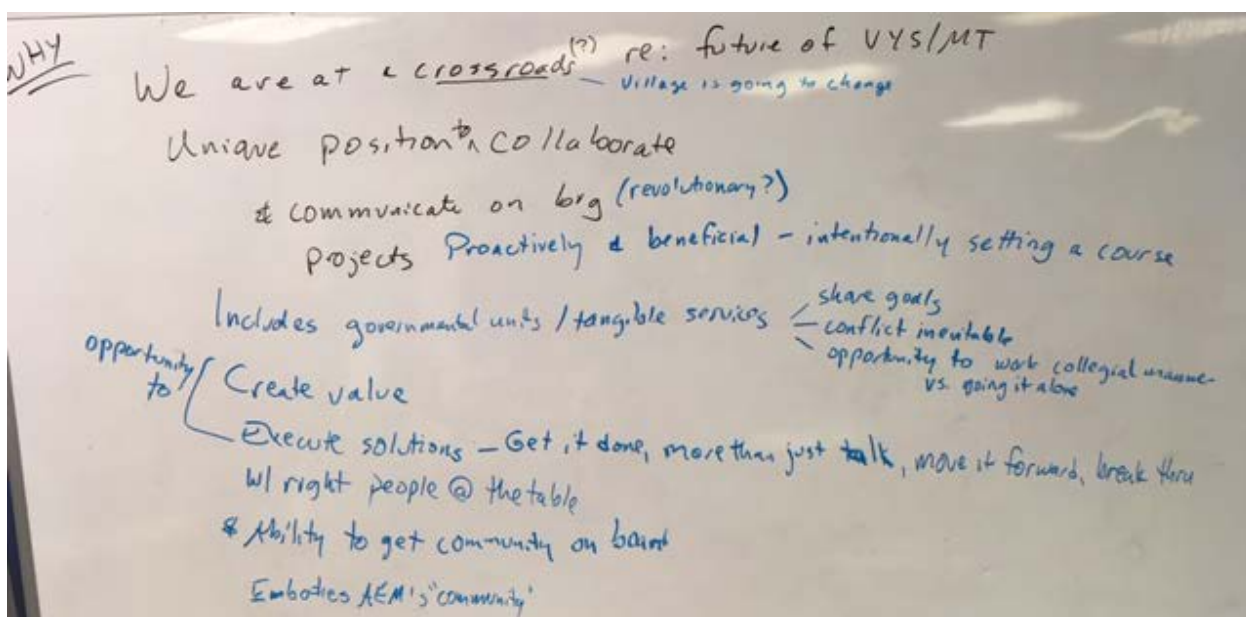 WHY
We are at a crossroads (?) re: future of VYS/MT
– Village is going to change
Unique position to collaborate
& communicate on big (revolutionary?)
projects Proactively & beneficial – intentionally setting a course
Includes governmental units / tangible services – share goals
– conflict inevitable
opportunity to work collegial manner
vs. going it alone
opportunity
to
Create value
Execute solutions – Get it done, more than just talk, move it forward, break thru
w/ right people @ the table
& Ability to get community on board
Embodies AEM's "community"